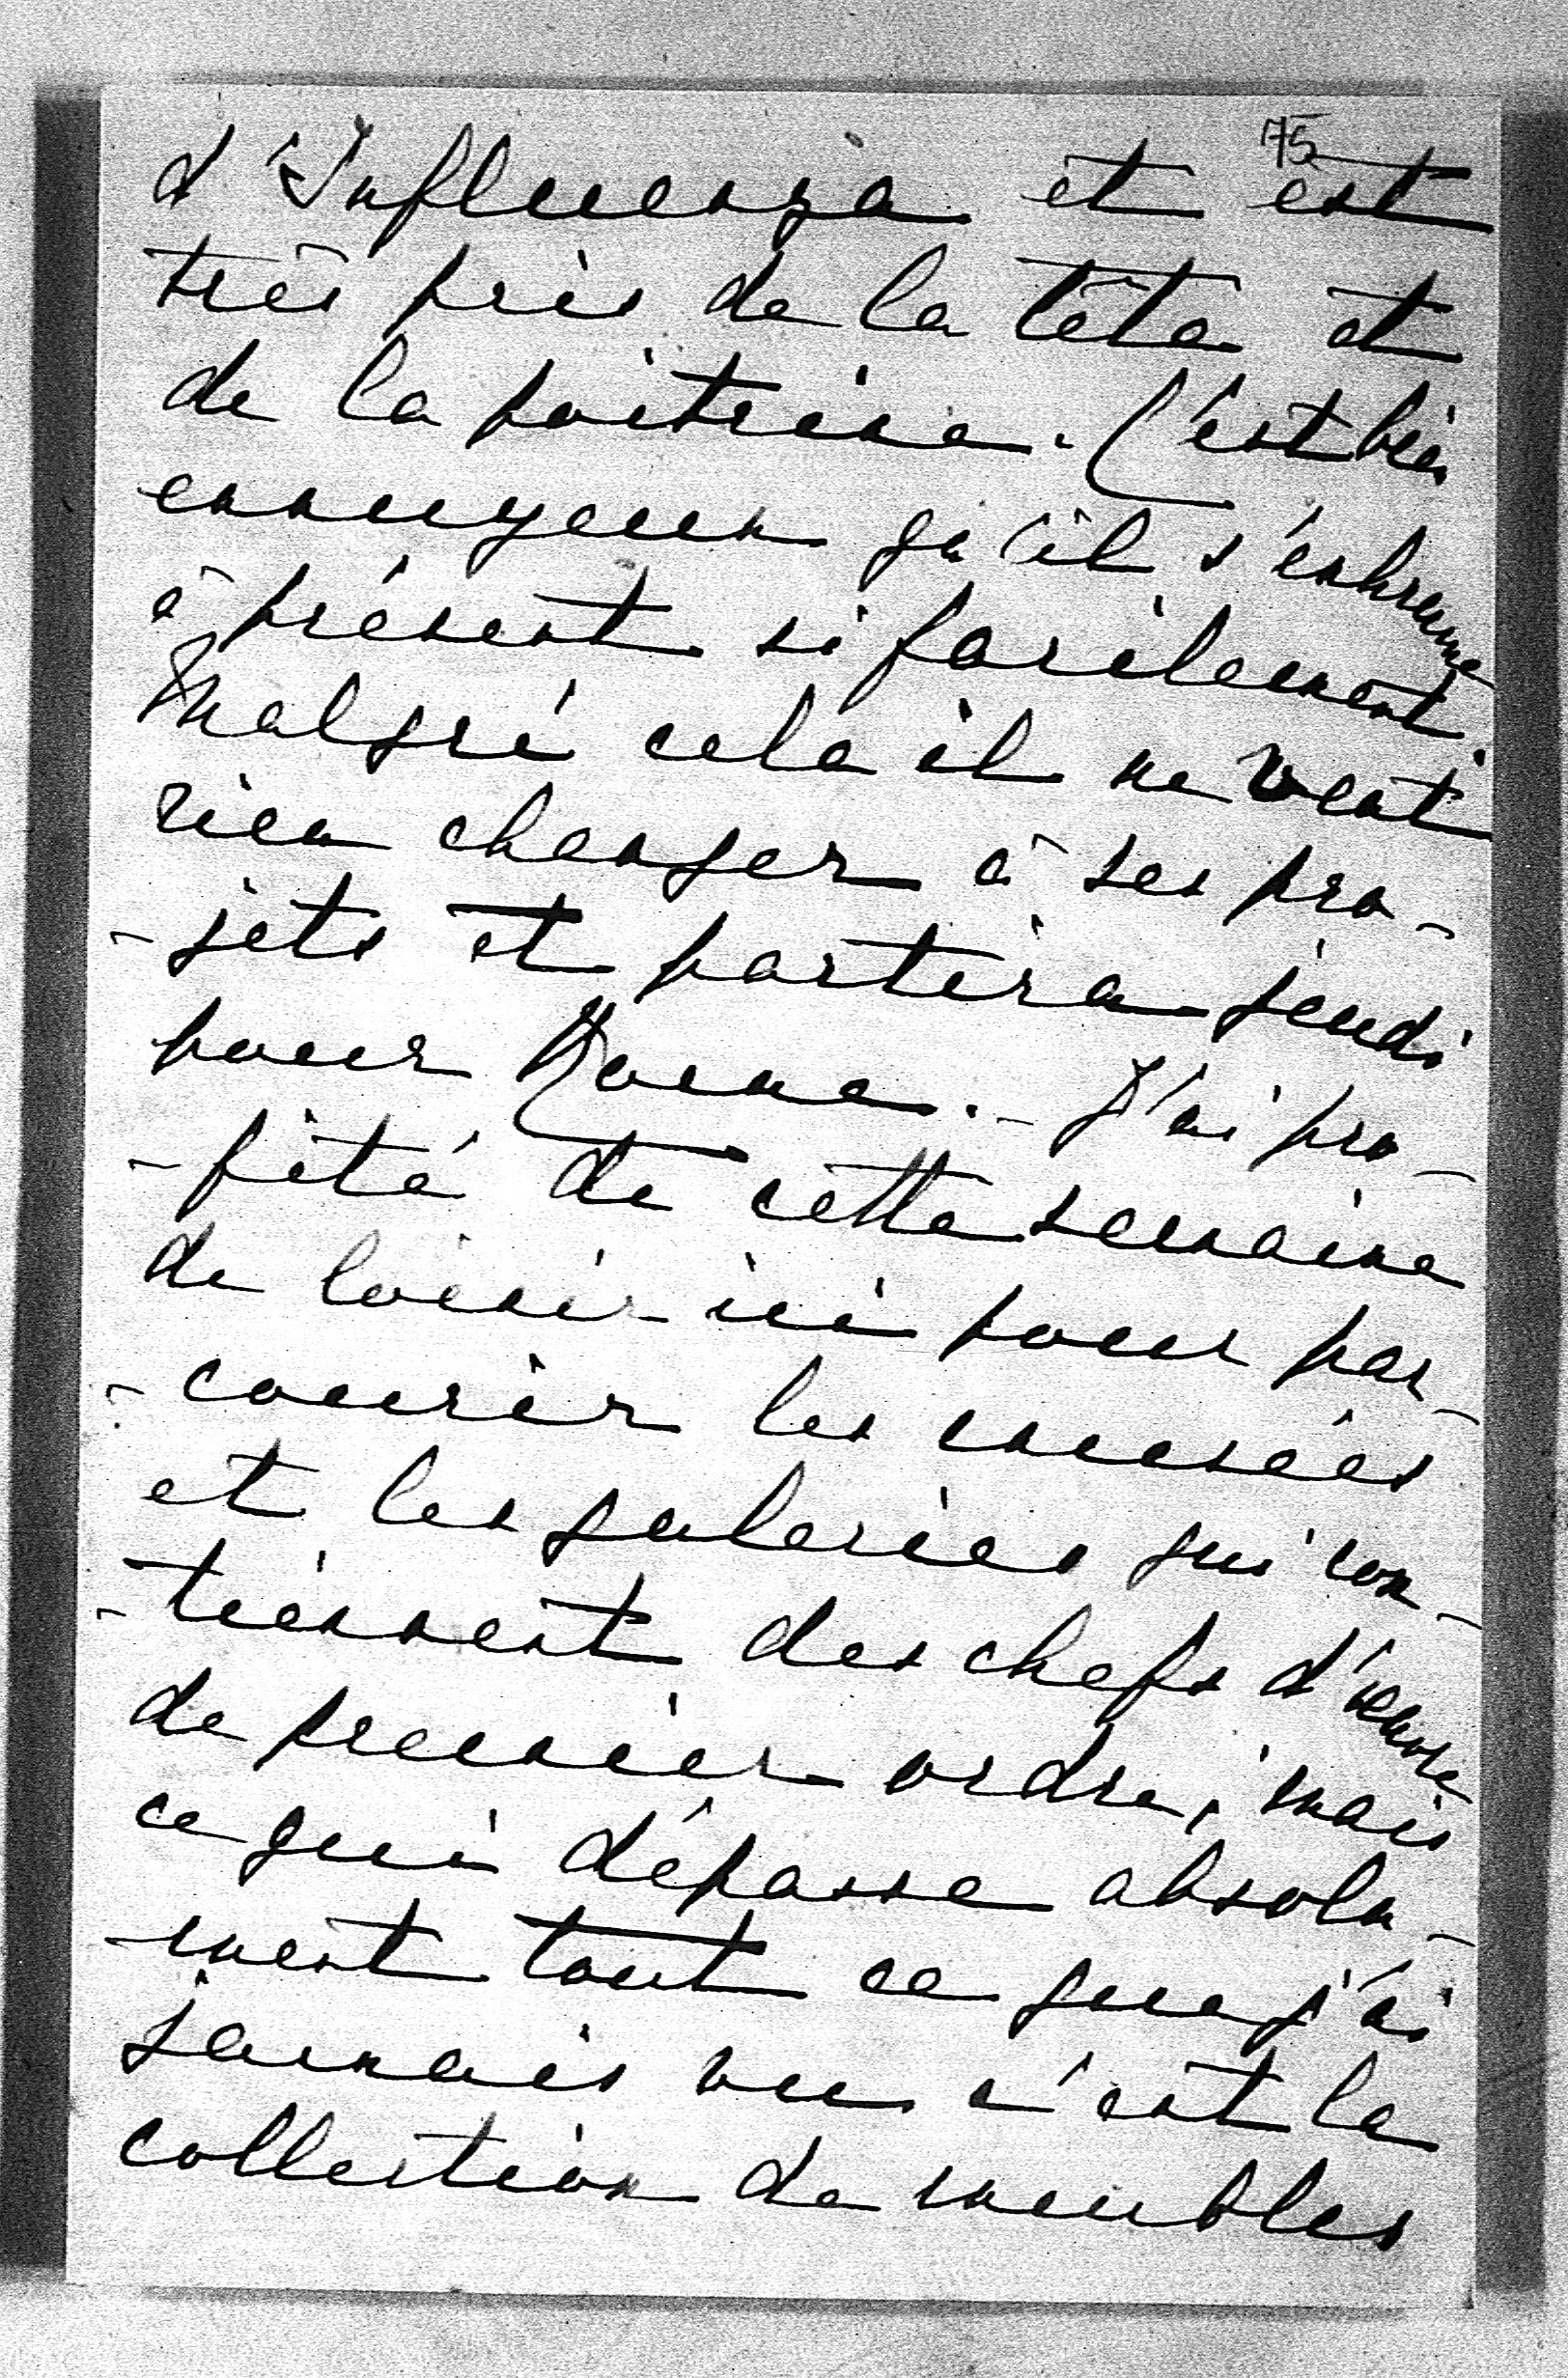 75
d'Influenza et est
très pris de la tête et
de la poitrine. C'est bien
ennuyeux qu'il s'enhrume
à présent si facilement.
Malgré cela il ne veut
rien changer à ses pro-
-jets et partira jeudi
pour Rome. - J'ai pro-
-fité de cette semaine
de loisir ici pour par-
-courir les musées
et les galeries qui con-
-tiennent des chefs d'œuvre
de premier ordre, mais
ce qui dépasse absolu-
-ment tout ce que j'ai
jamais vu c'est la
collection de meubles